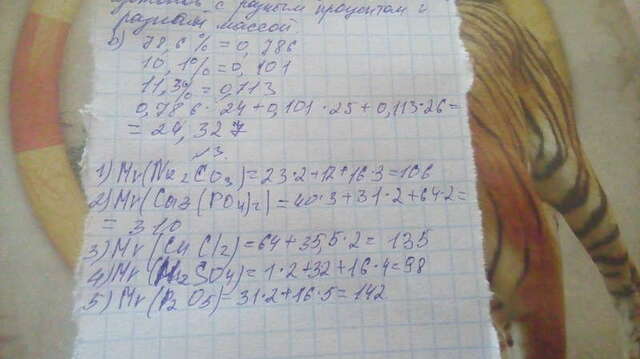 б) 78,6% = 0,786
10,1% = 0,101
11,3% = 0,113
0,786 · 24 + 0,101 · 25 + 0,113 · 26 =
= 24,327
√3.
1) Mr(Na2CO3) = 23·2 + 12 + 16·3 = 106
2) Mr(Ca3(PO4)2) = 40·3 + 31·2 + 64·2 =
= 310
3) Mr(CuCl2) = 64 + 35,5·2 = 135
4) Mr(H2SO4) = 1·2 + 32 + 16·4 = 98
5) Mr(P2O5) = 31·2 + 16·5 = 142